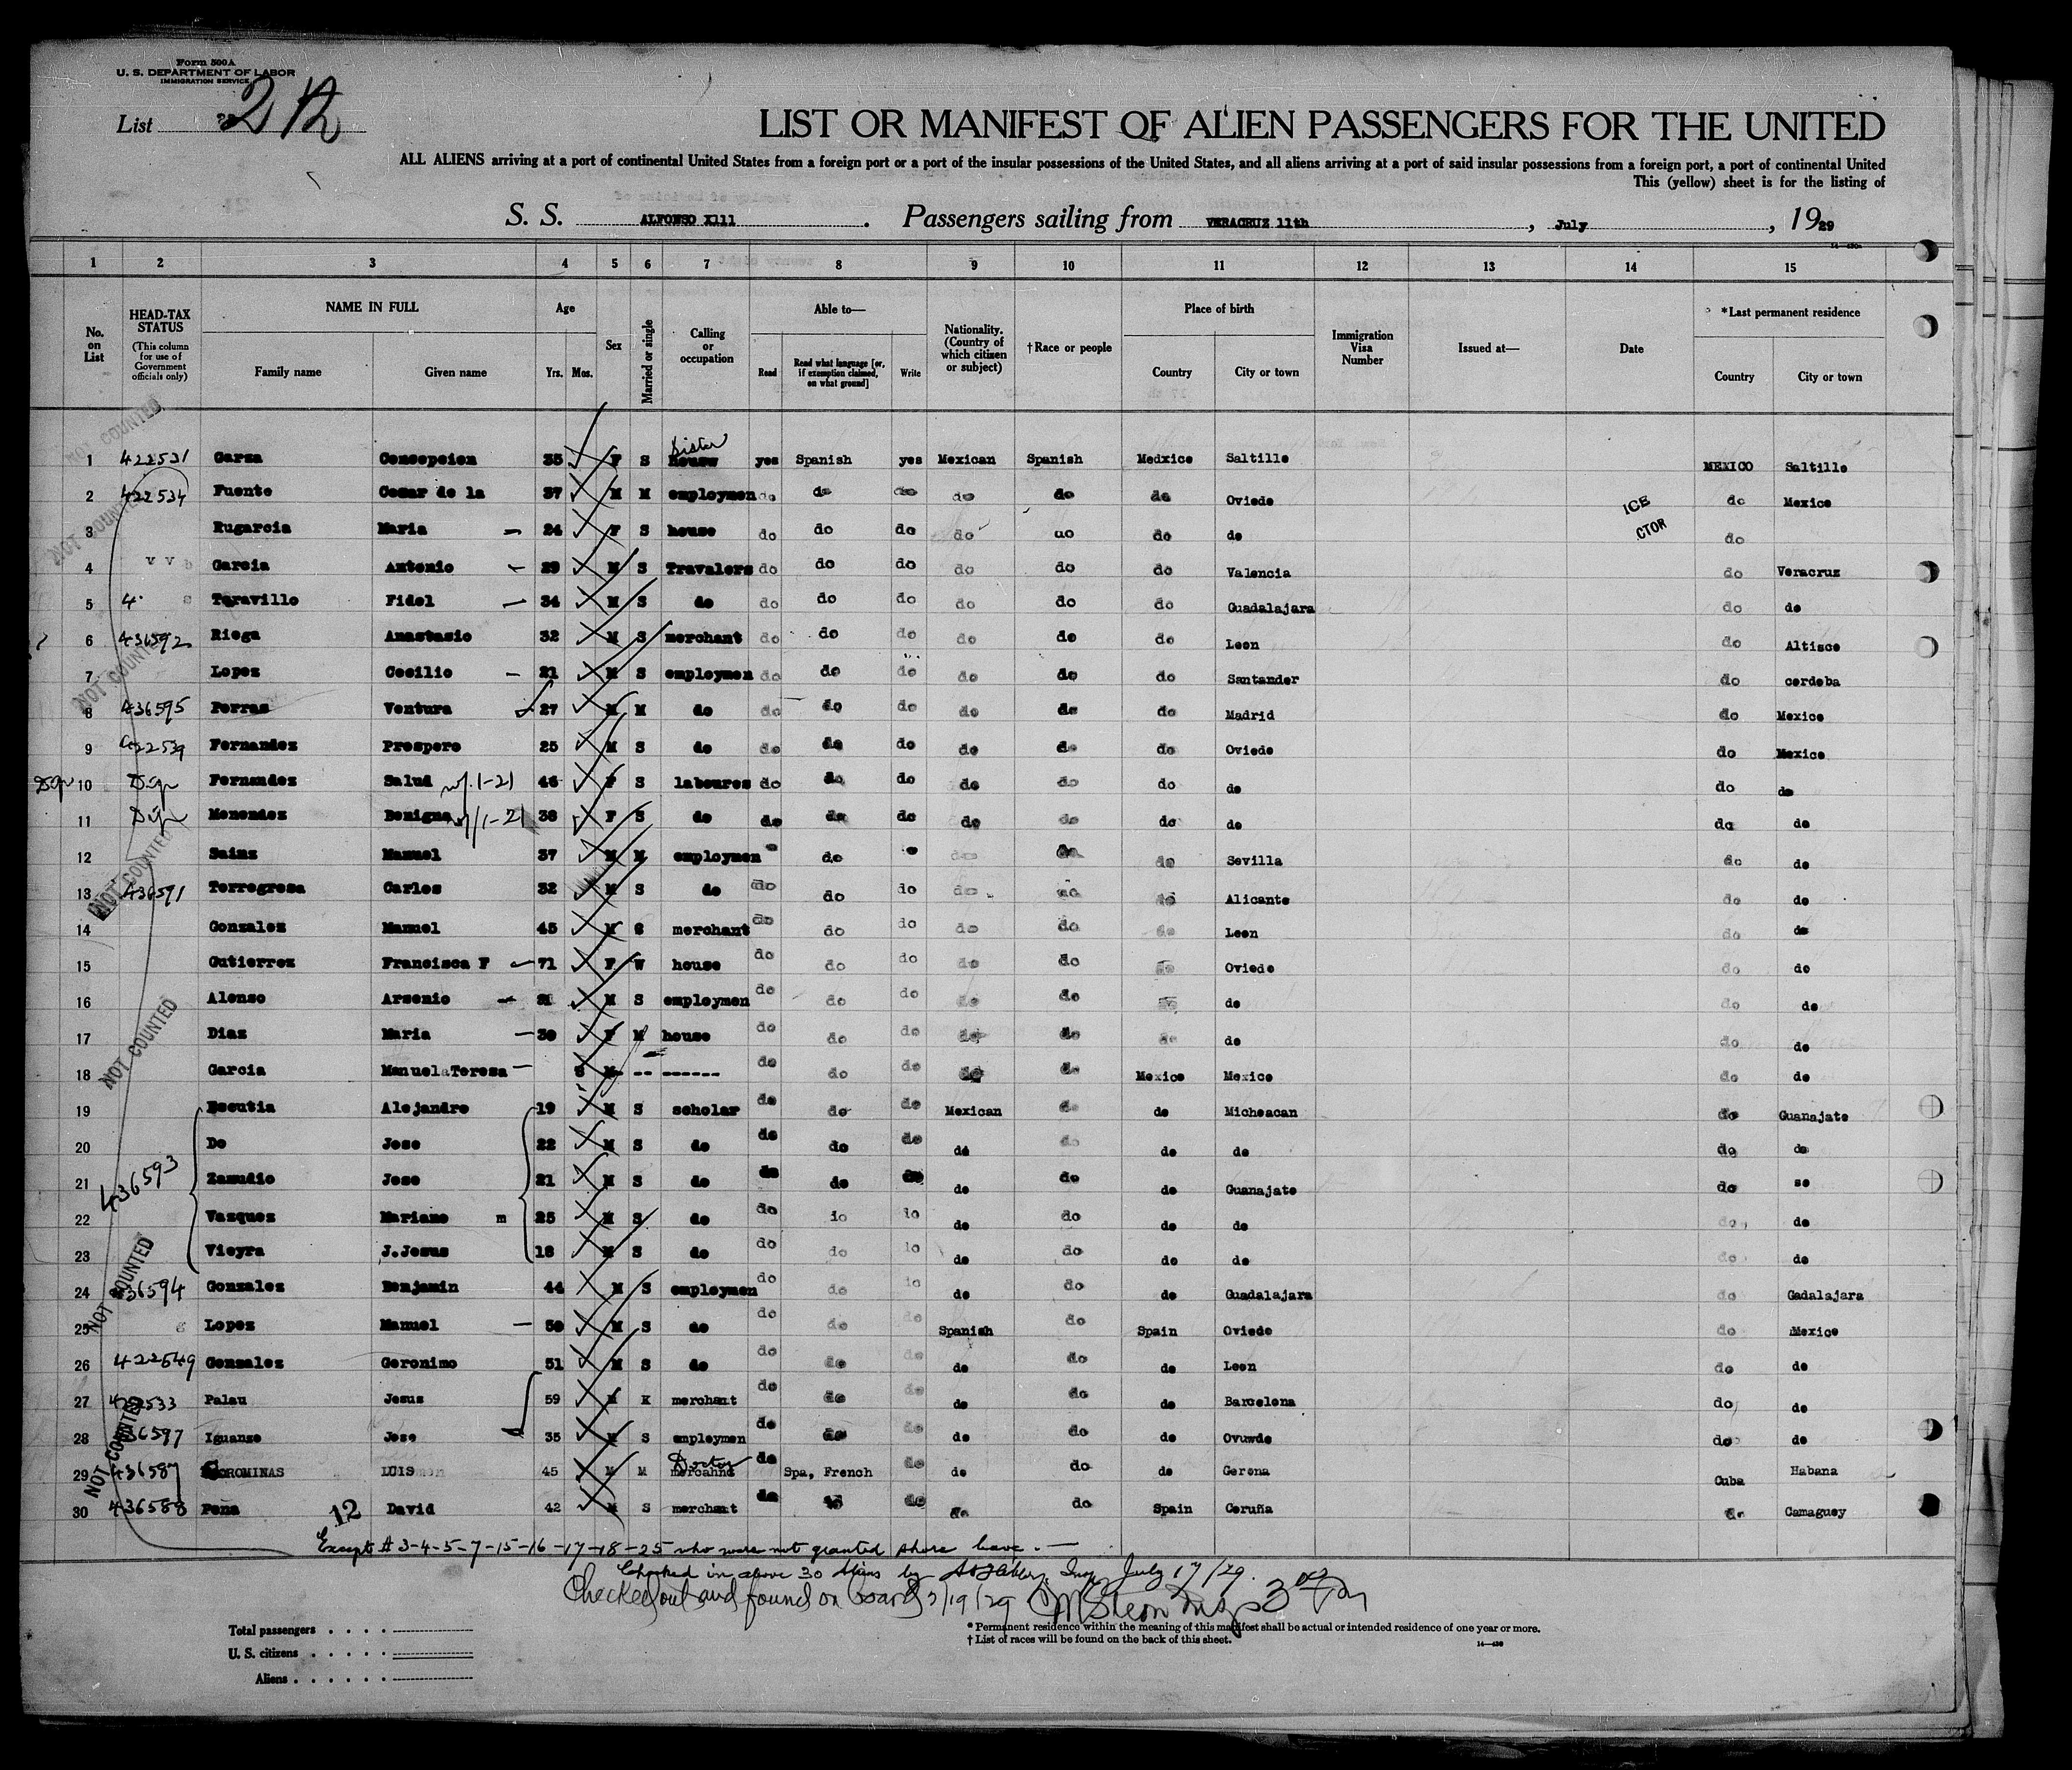 Form 500A
U. S. DEPARTMENT OF LABOR
IMMIGRATION SERVICE
List 2
LIST OR MANIFEST OF ALIEN PASSENGERS FOR THE UNITED
ALL ALIENS arriving at a port of continental United States from a foreign port or a port of the insular possessions of the United States, and all aliens arriving at a port of said insular possessions from a foreign port, a port of continental United
This (yellow) sheet is for the listing of
S. S. ALFONSO X111. Passengers sailing from VERACRUZ 11th, July, 1929
1 2 3 4 5 6 7 8 9 10 11 12 13 14 15
No. on List HEAD-TAX STATUS (This column for use of Government officials only) NAME IN FULL Family name Given name Age Yrs. Mos. Sex Married or single Calling or occupation Able to— Read Read what language [or, if exemption claimed, on what ground] Write Nationality. (Country of which citizen or subject) †Race or people Place of birth Country City or town Immigration Visa Number Issued at— Date *Last permanent residence Country City or town
1 422531 Garza Concepcion 35 F S Sister house yes Spanish yes Mexican Spanish Medxico Saltillo MEXICO Saltillo
2 422534 Fuente Cesar de la 37 M M employmen do do do do do do Oviedo do Mexico
3 Rugarcia Maria 24 F S house do do do do do do do do
4 Garcia Antonio 29 M S Travalers do do do do do do Valencia do Veracruz
5 Taravillo Fidel 34 M S do do do do do do do Guadalajara do do
6 436592 Riega Anastasio 32 M S merchant do do do do do do Leon do Altisco
7 Lopez Cecilio 21 M S employmen do do do do do do Santander do cordoba
8 436595 Porras Ventura 27 M M do do do do do do do Madrid do Mexico
9 422539 Fernandez Prospero 25 M S do do do do do do do Oviedo do Mexico
10 Fernandez Salud 1-21 46 F S laboures do do do do do do do do do
11 Menendez Benigna 1-21 38 F S do do do do do do do do do do
12 Sainz Manuel 37 M M employmen do do do do Sevilla do do
13 436591 Torregrosa Carlos 32 M S do do do do do do do Alicante do do
14 Gonzalez Manuel 45 M S merchant do do do do do do Leon do do
15 Gutierrez Francisca F 71 F W house do do do do do do Oviedo do do
16 Alonso Arsenio 21 M S employmen do do do do do do do do do
17 Diaz Maria 30 F M house do do do do do do do do do
18 Garcia ManuelaTeresa 8 M -- ------ do do do do do Mexico Mexico do do
19 Escutia Alejandro 19 M S scholar do do do Mexican do do Michoacan do Guanajato
20 Do Jose 22 M S do do do do do do do do do do
436593
21 Zamudio Jose 21 M S do do do do do do do Guanajato do so
22 Vazquez Mariano m 25 M S do do io io do do do do do do
23 Vieyra J.Jesus 18 M S do do do io do do do do do do
24 436594 Gonzalez Benjamin 44 M S employmen do do io do do do Guadalajara do Gadalajara
25 Lopez Manuel 50 M S do do do do Spanish do Spain Oviedo do Mexico
26 422549 Gonzalez Geronimo 51 M S do do do do do do do Leon do do
27 422533 Palau Jesus 59 M K merchant do do do do do do Barcelona do do
28 436597 Iguanzo Jose 35 M S employmen do do do do do do Ovuwdo do do
29 436587 COROMINAS LUIS 45 M M Doctor do Spa, French do do do do Gerona Cuba Habana
30 436588 Pena David 42 M S merchant do do do do do Spain Coruña do Camaguey
NOT COUNTED
NOT COUNTED
NOT COUNTED
NOT COUNTED
NOT COUNTED
NOT COUNTED
NOT COUNTED
ICE
CTOR
12
Except # 3-4-5-7-15-16-17-18-25 who were not granted shore leave.
Checked in above 30 Aliens by Insp July 17/29.
Checked out and found on board 7/19/29
Total passengers
U. S. citizens
Aliens
* Permanent residence within the meaning of this manifest shall be actual or intended residence of one year or more.
† List of races will be found on the back of this sheet.
14—430